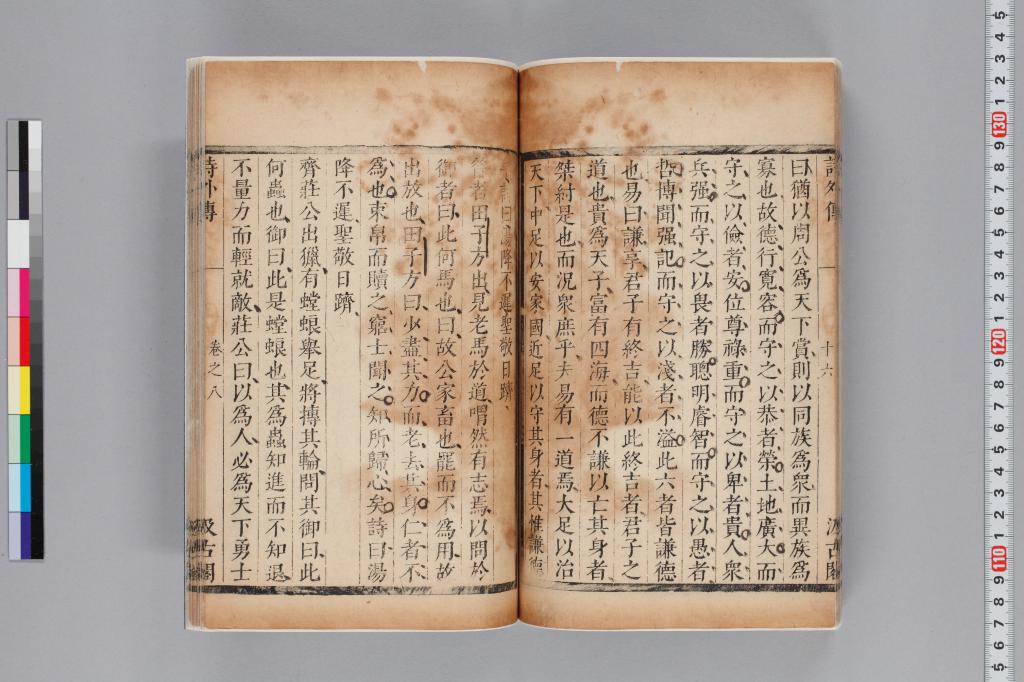 詩外傳
十六
汲古閣
曰猶以周公爲天下賞則以同族爲衆而異族爲
寡也故德行寬容而守之以恭者榮土地廣大而
守之以儉者安位尊祿重而守之以卑者貴人衆
兵强而守之以畏者勝聰明睿智而守之以愚者
哲博聞强記而守之以淺者不溢此六者皆謙德
也易曰謙亨君子有終吉能以此終吉者君子之
道也貴爲天子富有四海而德不謙以亡其身者
桀紂是也而況衆庶乎夫易有一道焉大足以治
天下中足以安家國近足以守其身者其惟謙德
詩曰湯降不遲聖敬日躋
昔者田子方出見老馬於道喟然有志焉以問於
御者曰此何馬也曰故公家畜也罷而不爲用故
出放也田子方曰少盡其力而老去其身仁者不
爲也束帛而贖之窮士聞之知所歸心矣詩曰湯
降不遲聖敬日躋
齊莊公出獵有螳蜋舉足將搏其輪問其御曰此
何蟲也御曰此是螳蜋也其爲蟲知進而不知退
不量力而輕就敵莊公曰以爲人必爲天下勇士
詩外傳
卷之八
汲古閣
5
4
3
2
1
130
9
8
7
6
5
4
3
2
1
120
9
8
7
6
5
4
3
2
1
110
9
8
7
6
5